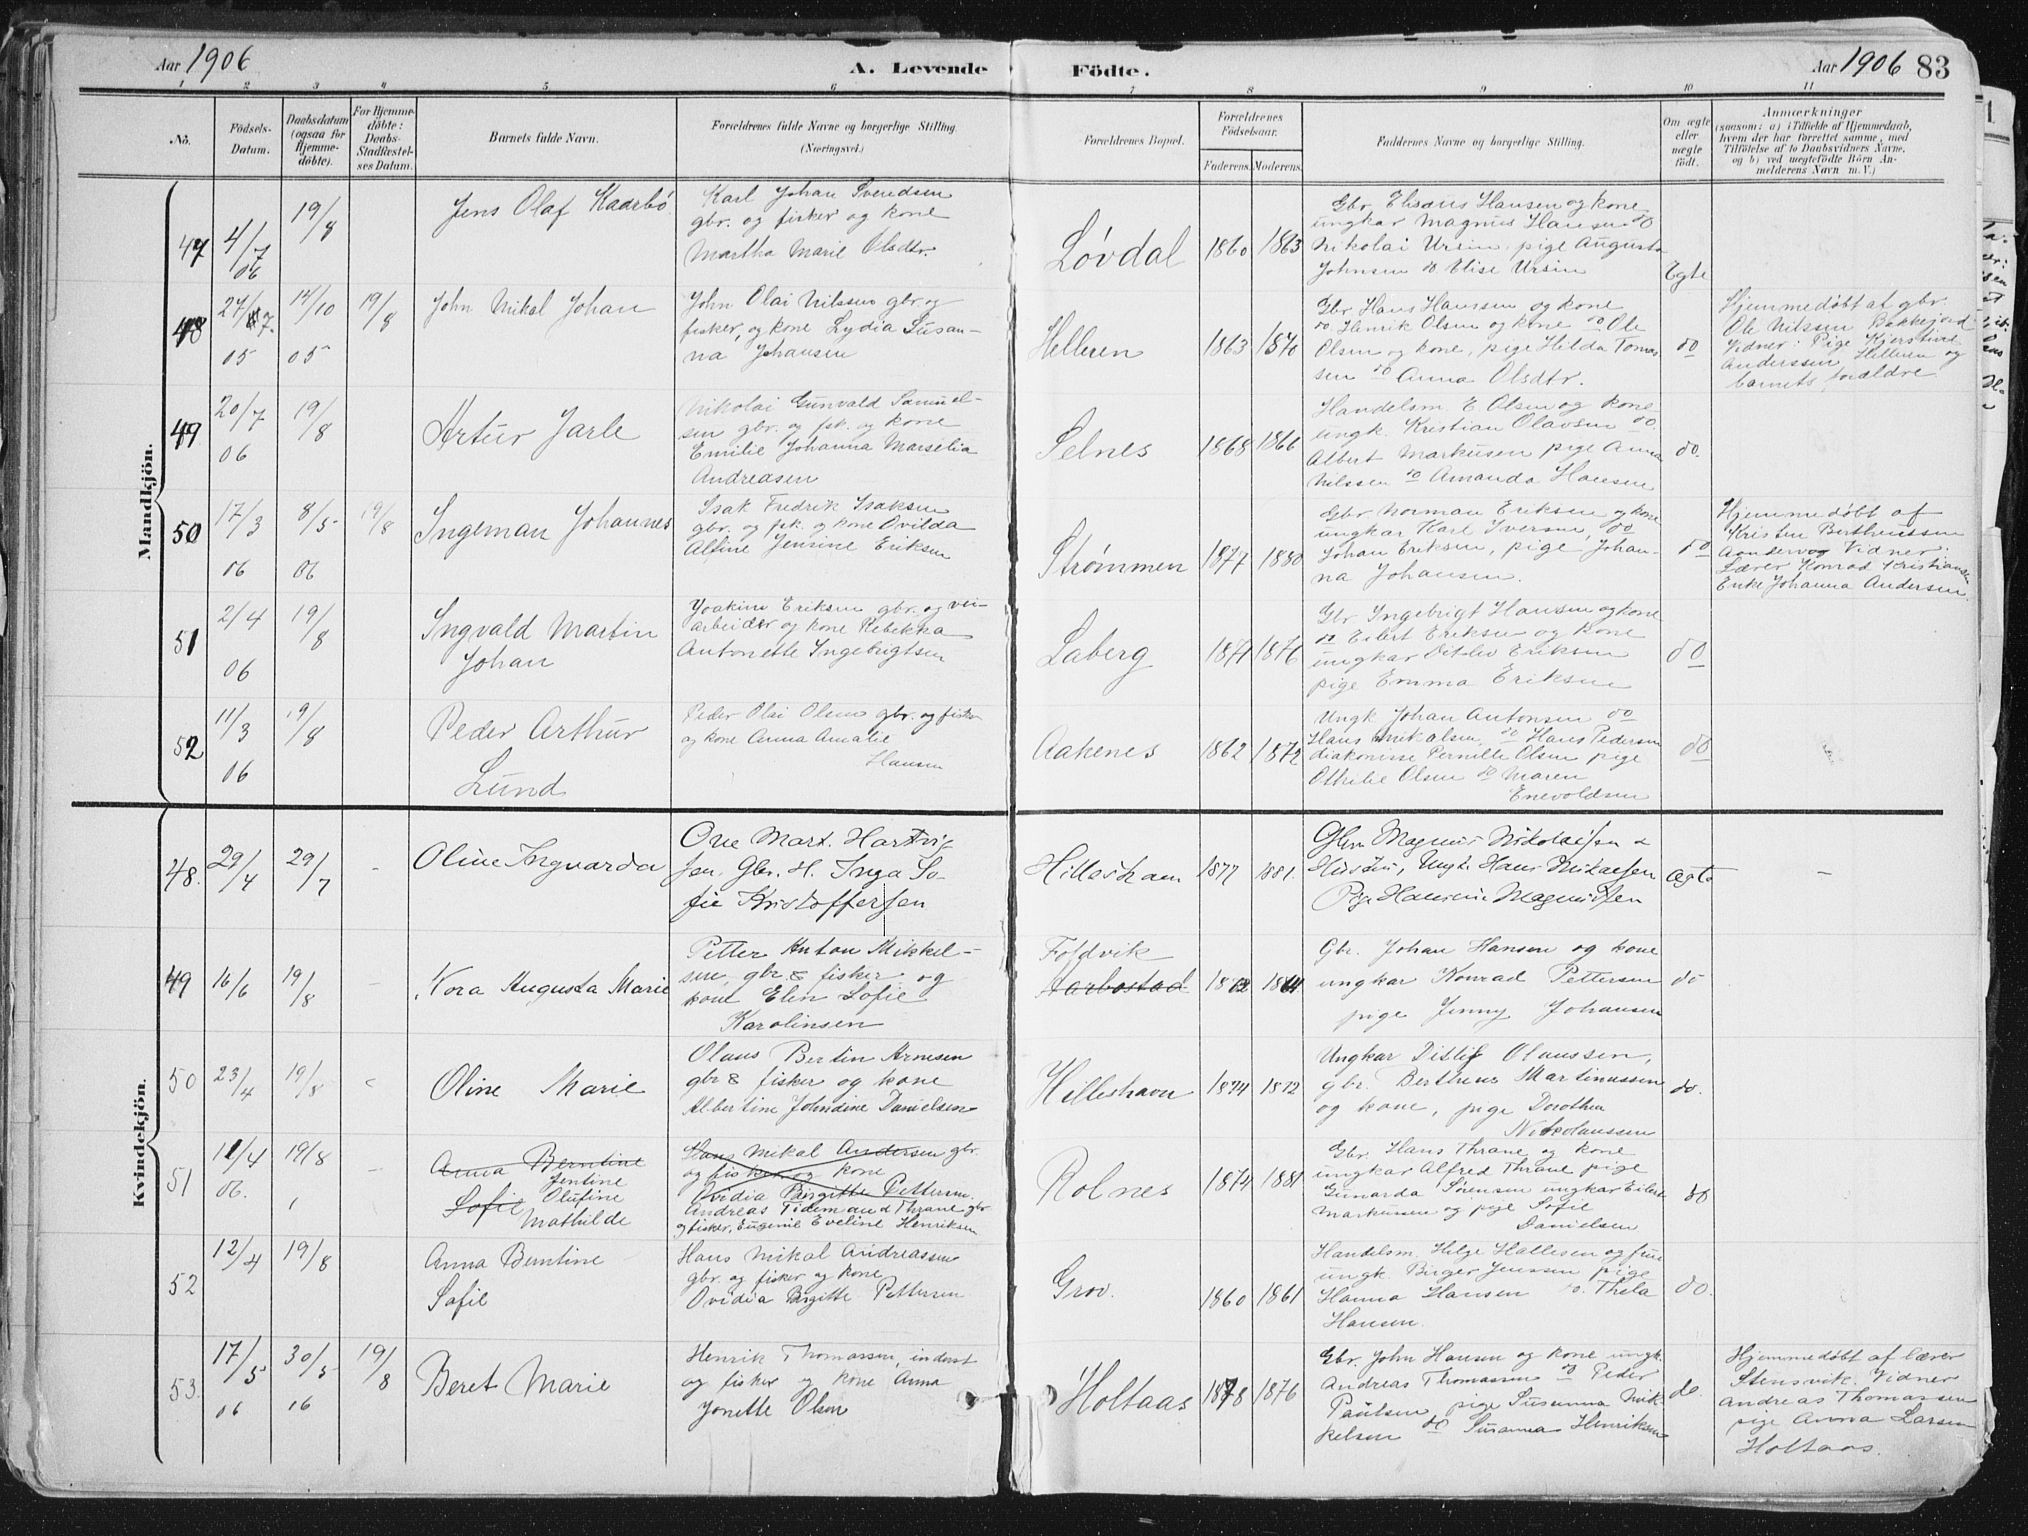 Aar 1906
A. Levende
Födte.
Aar 1906 83
1 2 3 4 5 6 7 8 9 10 11
No.
Födsels-
Datum.
Daabsdatum
(ogsaa for
Hjemme-
döbte).
For Hjemme-
döbte:
Daabs-
Stadfæstel-
ses Datum.
Barnets fulde Navn.
Forældrenes fulde Navne og borgerlige Stilling.
(Næringsvei.)
Forældrenes Bopæl.
Forældrenes
Födselsaar.
Faderens. Moderens.
Faddernes Navne og borgerlige Stilling.
Om ægte
eller
uægte
födt.
Anmærkninger
(saasom: a) i Tilfælde af Hjemmedaab,
hvem der har forrettet samme, med
Tilföielse af to Daabsvidners Navne,
og b) ved uegtefödte Börn An-
melderens Navn m. V.)
Mandkjön.
47
4/7
06
19/8
Jens Olaf Kaarbø
Karl Johan Svendsen
gbr. og fisker og kone
Martha Marie Olsdtr.
Løvdal
1860 1863
Gbr. Elisæus Hansen og kone
ungkar Magnus Hansen do
Nikolai Ursin, pige Augusta
Johnsen do Elise Ursin
Egte
48
27/7
05
14/10
05
19/8
John Mikal Johan
John Olai Nilssen gbr og
fisker, og kone Lydia Susan-
na Johansen
Helleren
1863 1870
Gbr Hans Hanssen og kone
do Henrik Olsen og kone do Ole
Olsen og kone, pige Hilda Tomas
sen do Anna Olsdtr.
do
Hjemmedøbt af gbr.
Ole Nilssen Bakkejord
Vidner: Pige Kjerstine
Anderssen Helleren og
barnets forældre
49
20/7
06
19/8
Artur Jarle
Nikolai Gunvald Samuel-
sen gbr. og fsk. og kone
Emilie Johanna Marselia
Andreasen
Selnes
1868 1866
Handelsm. E Olsen og kone
ungk. Kristian Olavsen do.
Albert Markusen pige Anna
Nilssen do Amanda Hansen
do.
50
17/3
06
8/5
06
19/8
Ingeman Johannes
Isak Fredrik Isaksen
gbr. og fsk. og kone Ovilda
Alfine Jensine Eriksen
Strømmen
1877 1880
Gbr Norman Eriksen og kone
ungkar Karl Iversen, do
Johan Eriksen, pige Johan-
na Johansen.
do
Hjemmedøbt af
Kristen Bertheussen
Aandervog Vidner:
Lærer Konrad Kristiansen
Enke Johanna Andersen.
51
2/4
06
19/8
Ingvald Martin
Johan
Joakim Eriksen gbr. og vei-
arbeider og kone Rebekka
Antonette Ingebrigtsen
Laberg
1871 1876
Gbr Ingebrigt Hansen og kone
do Eilert Eriksen og kone
ungkar Ditlev Eriksen
pige Emma Eriksen
do
52
11/3
06
19/8
Peder Arthur
Lund
Peder Olai Olsen gbr. og fisker
og kone Anna Amalie
Hansen
Aakenes
1862 1872
Ungk Johan Antonsen do
Hans Mikalsen, do Hans Pedersen
diakonisse Pernille Olsen pige
Othilie Olsen do Maren
Enevoldsen
do
Kvindekjön.
48.
29/4
29/7
-
Oline Ingvarda
Ove Mart. Hartvig
sen, Gbr. H. Inga So
fie Kristoffersen
Hilleshavn
1877 1881.
Gbr. Magnus Nikolaisen &
Hustru, Ungk Hans Mikalsen
Pige Hansine Magnussen
Ægte
-
49
16/6
19/8
-
Nora Augusta Marie
Petter Anton Mikkel-
sen, gbr & fisker og
kone Elen Sofie
Karolinsen
Foldvik
Aarbostad
1862 1864
Gbr. Johan Hansen og kone
ungkar Konrad Pettersen
pige Jenny Johansen
do
50
23/4
19/8
Oline Marie
Olaus Bertin Arnesen
gbr & fisker og kone
Albertine Johndine Danielsen
Hilleshavn
1874 1872
Ungkar Ditlif Olaussen,
gbr. Bertheus Martinussen
og kone, pige Dorothea
Nikolaussen
do.
51
11/4
06.
19/8
-
Anna Berntine
Jentine
Sofie Olufine
Mathilde
Hans Mikal Andersen gbr.
og fisker og kone
Ovidia Birgitte Pettersen.
Andreas Tidemand Thrane gbr
og fisker, Eugenie Eveline Henriksen
Rolnes
1874 1881
Gbr. Hans Thrane og kone
ungkar Alfred Thrane pige
Gunarda Sørensen ungkar Eilert
Markussen og pige Sofie
Danielsen
do
52
12/4
19/8
Anna Berntine
Sofie
Hans Mikal Andreassen
gbr. og fisker og kone
Ovidia Birgitte Pettersen
Grov.
1860 1861
Handelsm. Helge Hallesen og frue
ungk. Birger Jenssen pige
Hanna Hansen do. Thela
Hansen.
do.
53.
17/5
06
30/5
06
19/8
Beret Marie
Henrik Thomassen, inderst
og fisker og kone Anna
Jonette Olsen
Holtaas
1878 1876
Gbr. John Hansen og kone ungk.
Andreas Thomassen do Peder
Paulsen, pige Susanna Mik
kelsen do Susanna Henriksen
do.
Hjemmedøbt af lærer
Stensvik. Vidner
Andreas Thomassen
pige Anna Larsen
Holtaas.